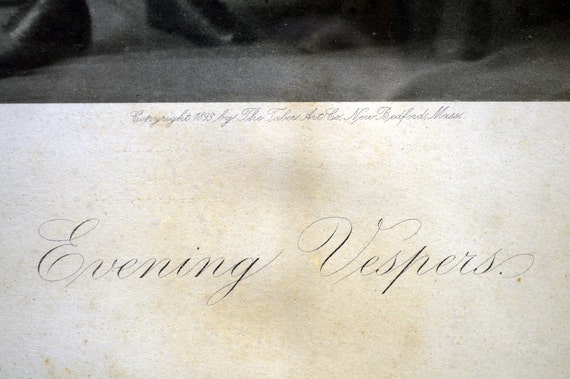 Copyright 1893 by The Taber Art Co. New Bedford, Mass.
Evening Vespers.